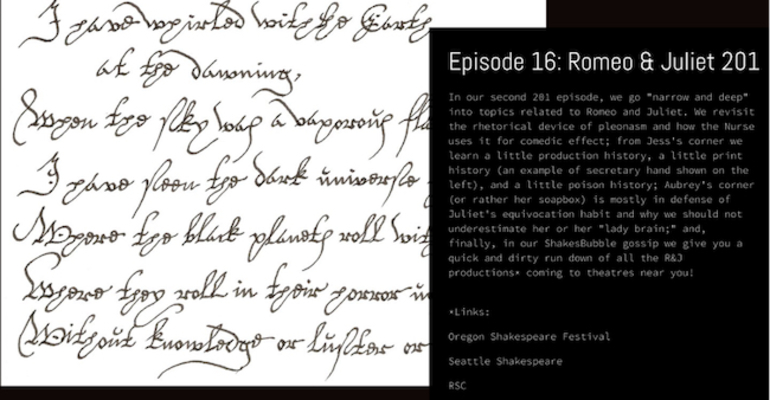 I have whirled with the Earth
at the dawning,
When the sky was a vaporous fla
I have seen the dark universe
Where the black planets roll wit
Where they roll in their horror u
Without knowledge or luster or
Episode 16: Romeo & Juliet 201
In our second 201 episode, we go "narrow and deep"
into topics related to Romeo and Juliet. We revisit
the rhetorical device of pleonasm and how the Nurse
uses it for comedic effect; from Jess's corner we
learn a little production history, a little print
history (an example of secretary hand shown on the
left), and a little poison history; Aubrey's corner
(or rather her soapbox) is mostly in defense of
Juliet's equivocation habit and why we should not
underestimate her or her "lady brain;" and,
finally, in our ShakesBubble gossip we give you a
quick and dirty run down of all the R&J
productions* coming to theatres near you!
*Links:
Oregon Shakespeare Festival
Seattle Shakespeare
RSC